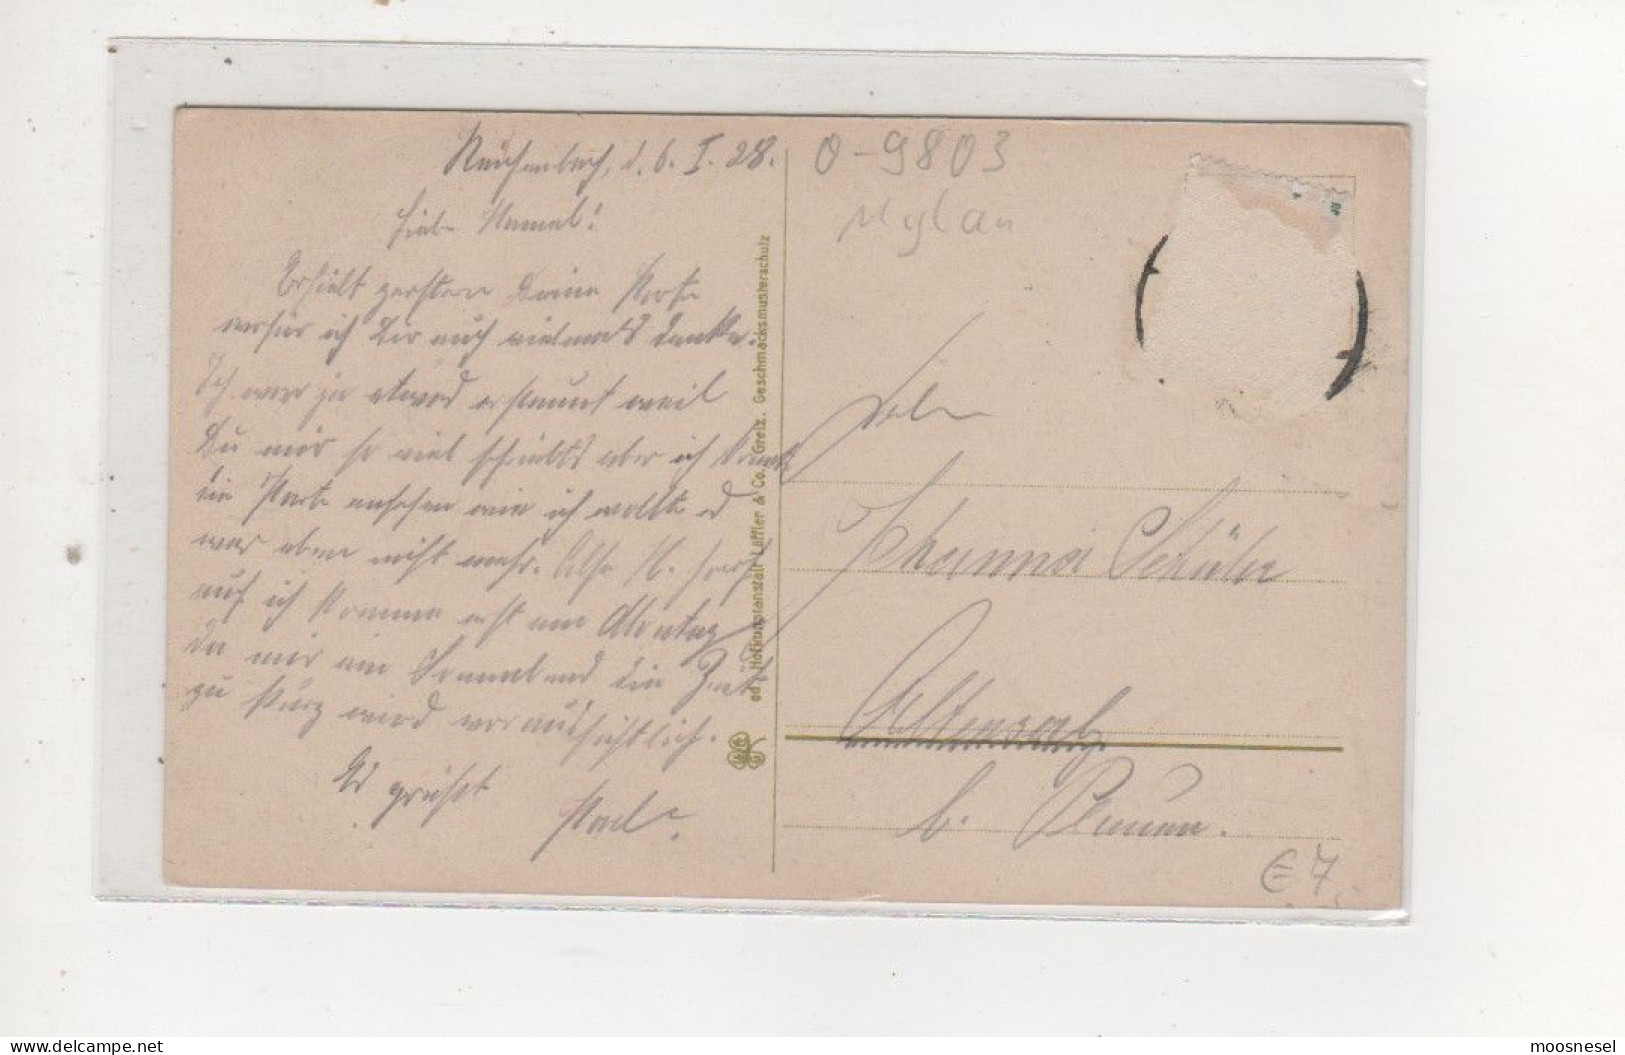 Reichenbach, d. 6. I. 28.
Liebe Hannel!
Erhielt gestern Deine Karte
wofür ich Dir auch vielmals danke.
Ich war ja etwas erstaunt weil
Du mir so viel schriebst aber ich konnt
die Karte ansehen wie ich wollte es
war eben nicht mehr. Also H.
auf ich komme erst am Montag
da mir am Sonnabend die Zeit
zu kurz wird voraussichtlich.
Es grüßt
Karl.
ed. Hofkunstanstalt Löffler & Co. Greiz. Geschmacksmusterschutz
0-9803
Mylau
Johanna Schüler
Altensalz
b. Plauen.
€ 7.-
delcampe.net
moosnesel